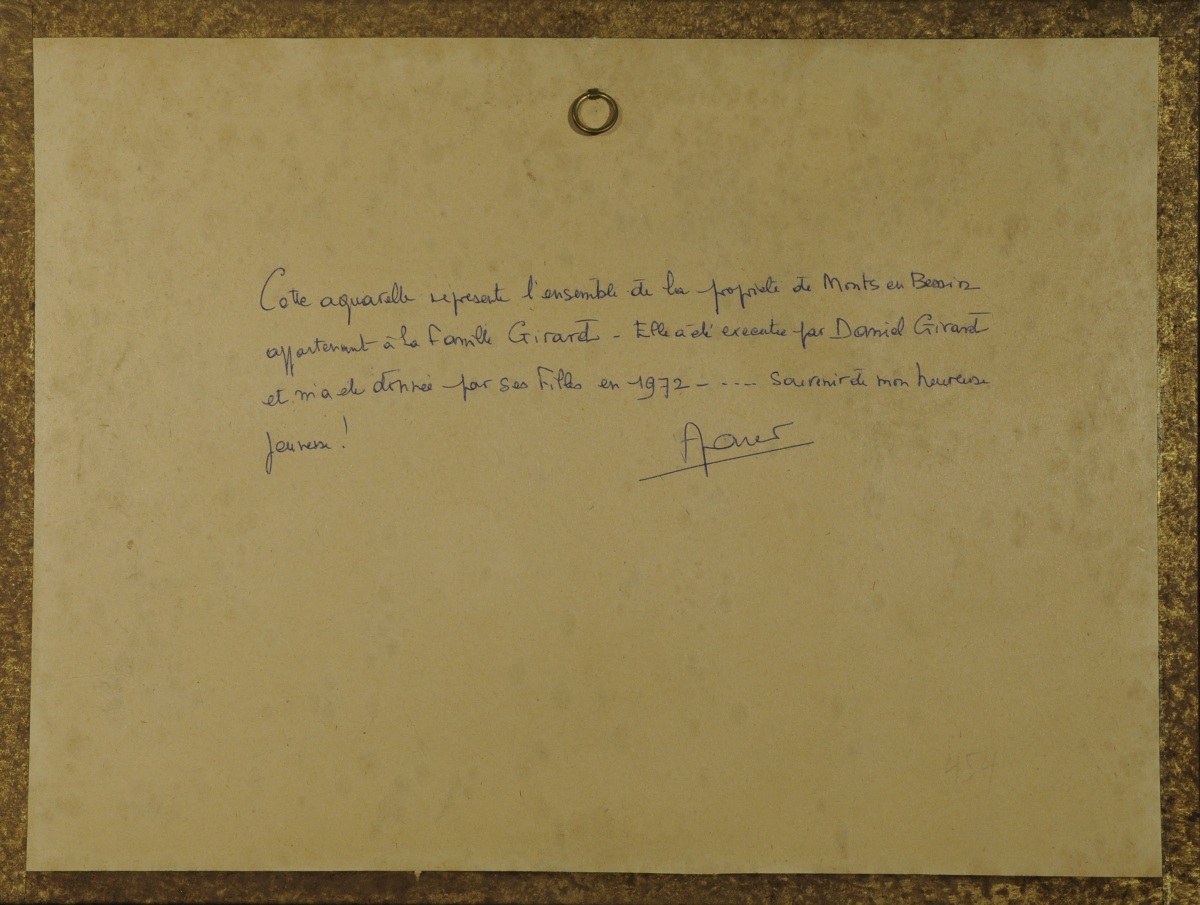 Cette aquarelle represente l'ensemble de la propriete de Monts en Bessin
appartenant à la Famille Girard - Elle a été executée par Daniel Girard
et m'a été donnée par ses Filles en 1972 - .... Souvenir de mon heureuse
jeunesse !